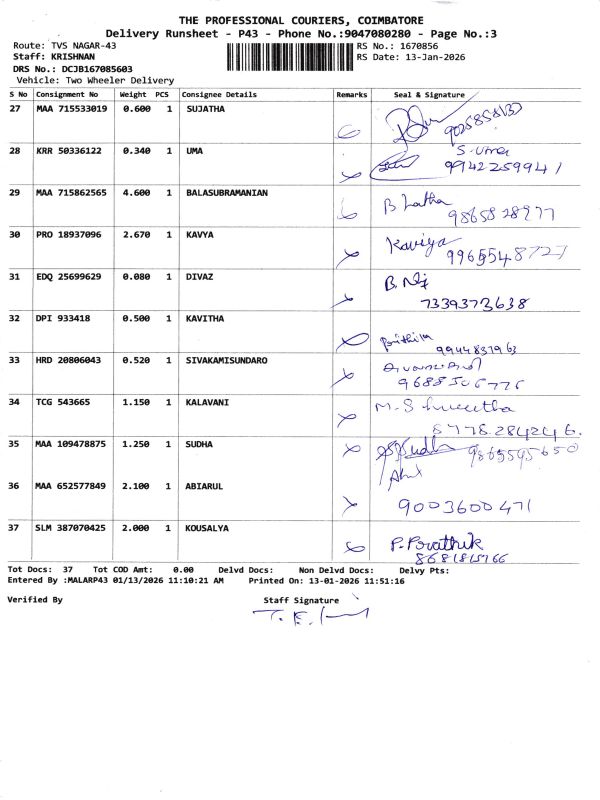 THE PROFESSIONAL COURIERS, COIMBATORE
Delivery Runsheet - P43 - Phone No.:9047080280 - Page No.:3
Route: TVS NAGAR-43 RS No.: 1670856
Staff: KRISHNAN RS Date: 13-Jan-2026
DRS No.: DCJB167085603
Vehicle: Two Wheeler Delivery
S No Consignment No Weight PCS Consignee Details Remarks Seal & Signature
27 MAA 715533019 0.600 1 SUJATHA
28 KRR 50336122 0.340 1 UMA S. Uma
9942259941
29 MAA 715862565 4.600 1 BALASUBRAMANIAN B Latha
9865828977
30 PRO 18937096 2.670 1 KAVYA Kaviya
31 EDQ 25699629 0.080 1 DIVAZ
7339373638
32 DPI 933418 0.500 1 KAVITHA
9944837963
33 HRD 20806043 0.520 1 SIVAKAMISUNDARO
34 TCG 543665 1.150 1 KALAVANI
8778284246.
35 MAA 109478875 1.250 1 SUDHA Sudha
9865595650
36 MAA 652577849 2.100 1 ABIARUL
9003600471
37 SLM 387070425 2.000 1 KOUSALYA
Tot Docs: 37 Tot COD Amt: 0.00 Delvd Docs: Non Delvd Docs: Delvy Pts:
Entered By :MALARP43 01/13/2026 11:10:21 AM Printed On: 13-01-2026 11:51:16
Verified By Staff Signature